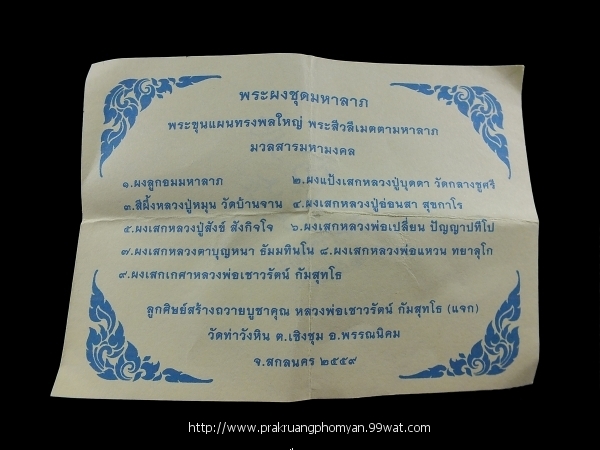 พระผงชุดมหาลาภ
พระขุนแผนทรงพลใหญ่ พระสีวลีเมตตามหาลาภ
มวลสารมหามงคล
๑.ผงลูกอมมหาลาภ ๒.ผงแป้งเสกหลวงปู่บุดดา วัดกลางชูศรี
๓.สีผึ้งหลวงปู่หมุน วัดบ้านจาน ๔.ผงเสกหลวงปู่อ่อนสา สุขกาโร
๕.ผงเสกหลวงปู่สังข์ สังกิจโจ ๖.ผงเสกหลวงพ่อเปลี่ยน ปัญญาปทีโป
๗.ผงเสกหลวงตาบุญหนา ธัมมทินโน ๘.ผงเสกหลวงพ่อแหวน ทยาลุโก
๙.ผงเสกเกศาหลวงพ่อเชาวรัตน์ กัมสุทโธ
ลูกศิษย์สร้างถวายบูชาคุณ หลวงพ่อเชาวรัตน์ กัมสุทโธ (แจก)
วัดท่าวังหิน ต.เชิงชุม อ.พรรณนิคม
จ.สกลนคร ๒๕๕๙
http://www.prakruangphomyan.99wat.com